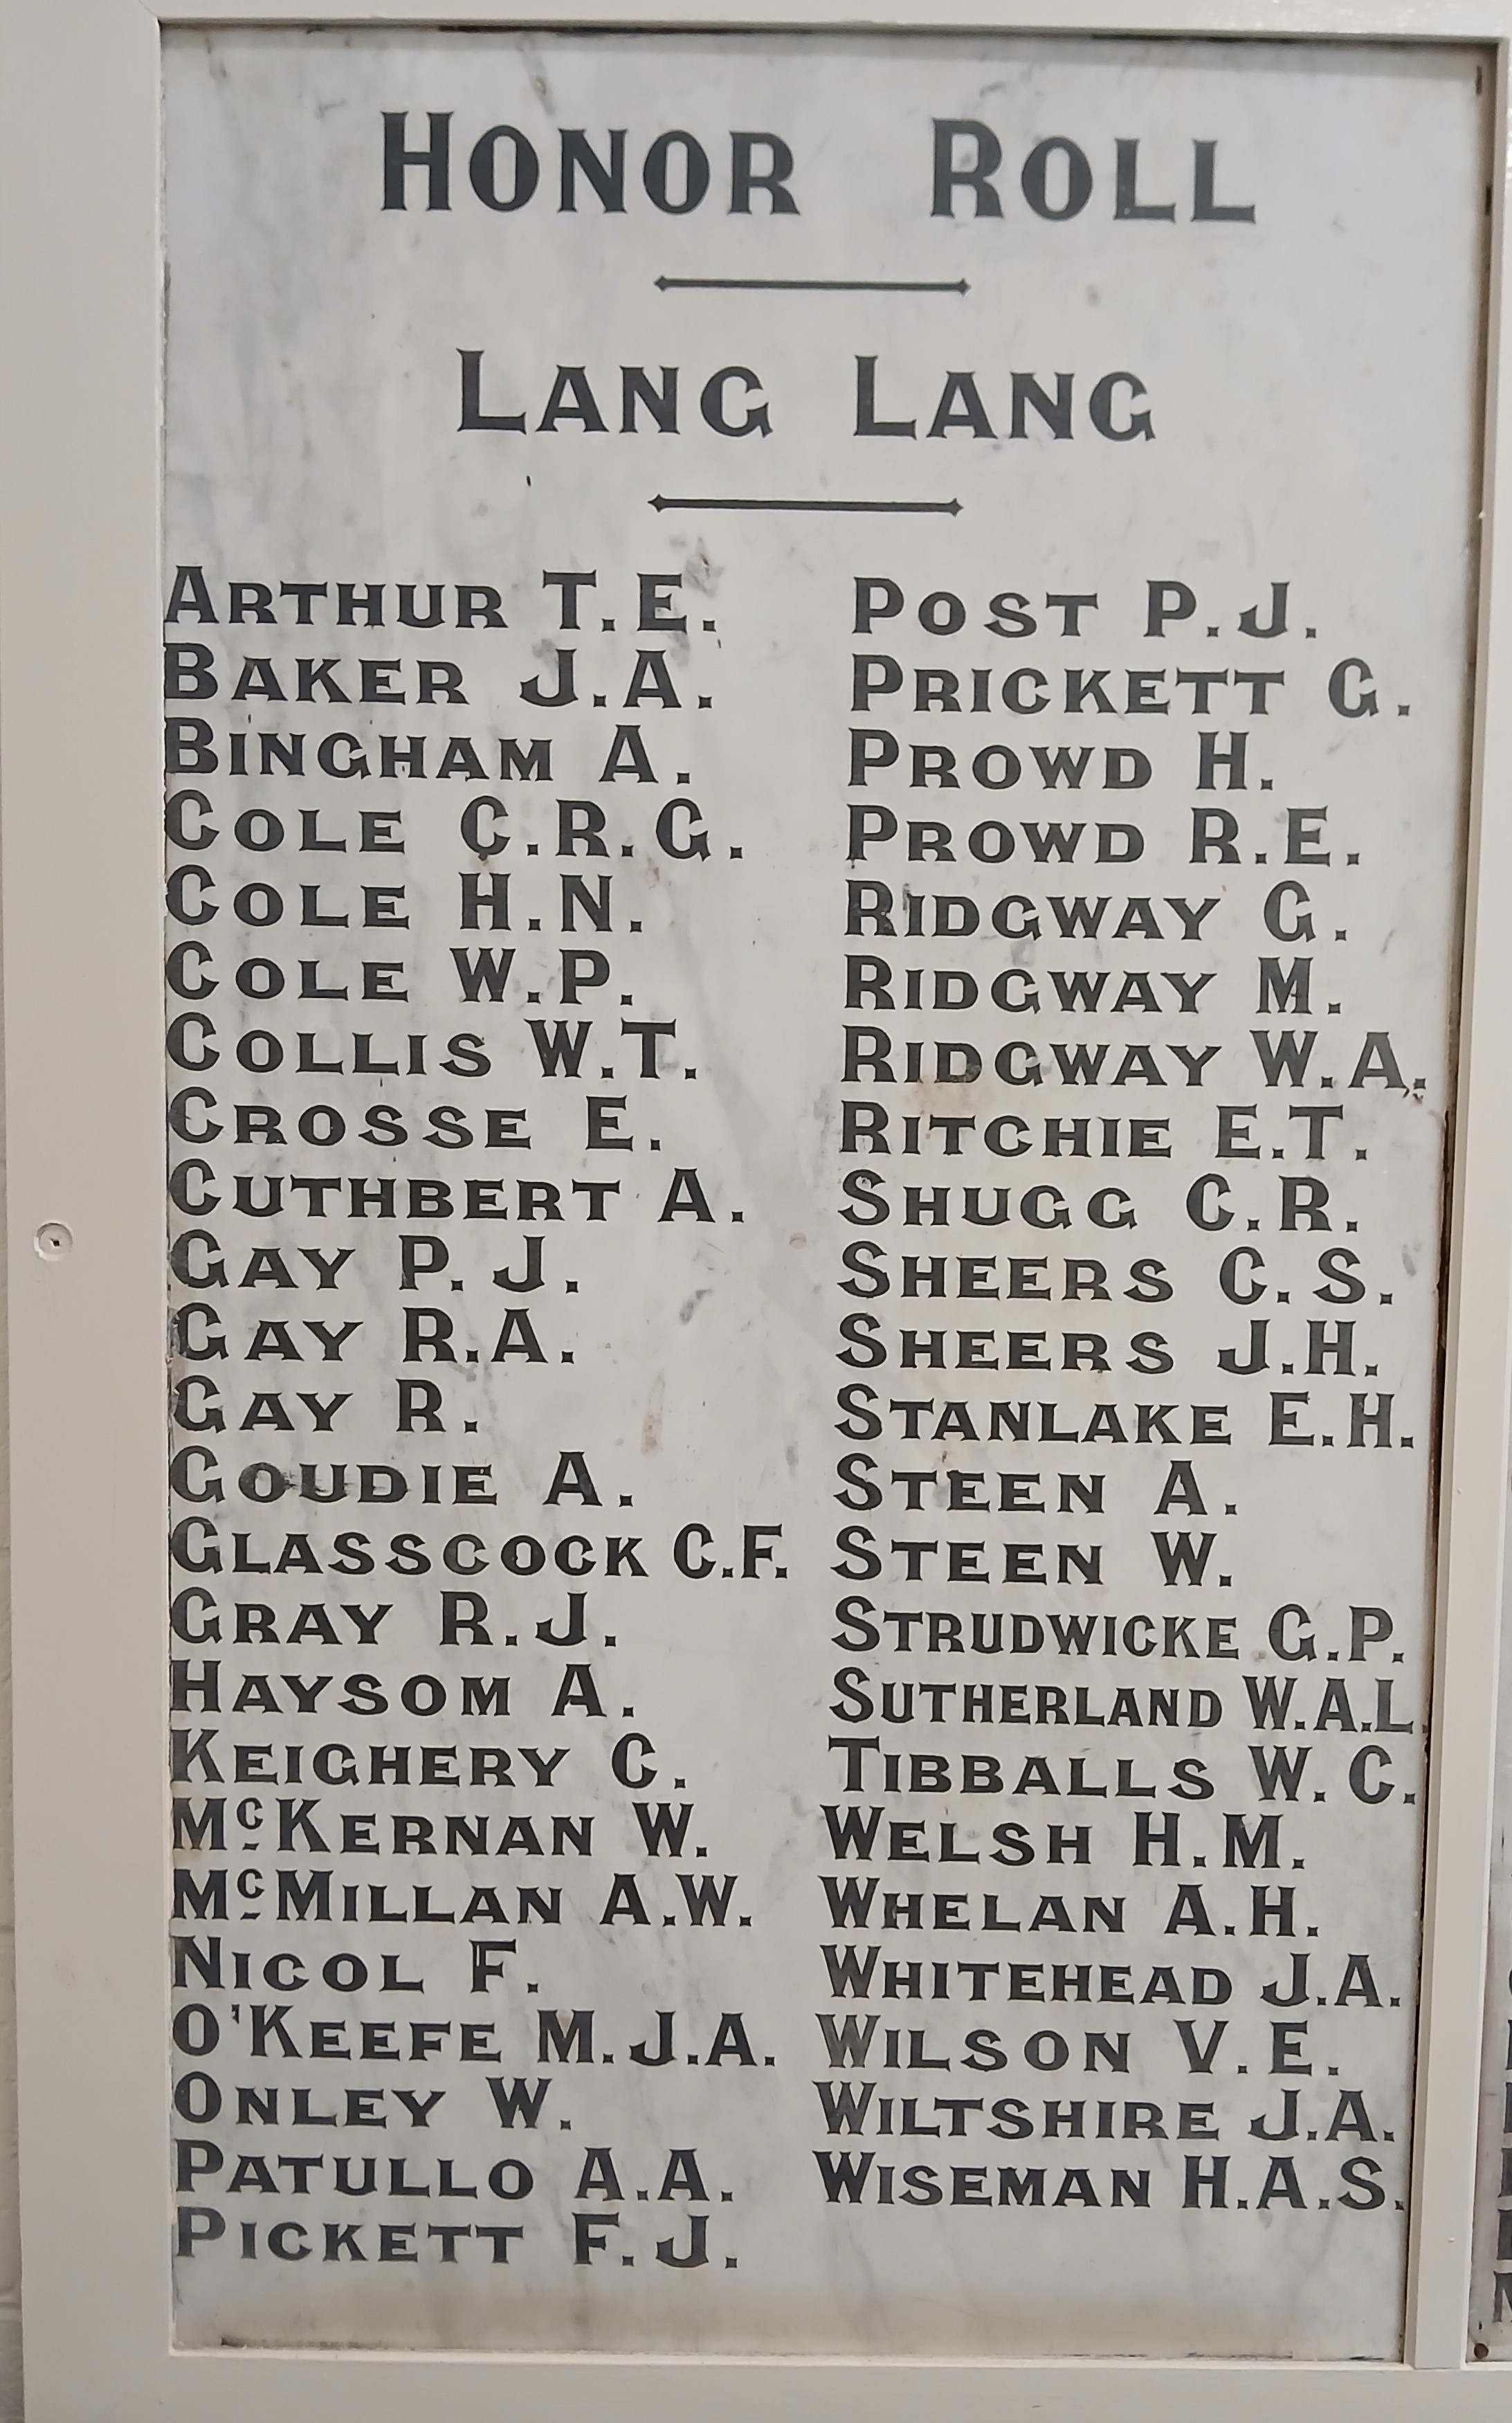 HONOR ROLL
LANG LANG
ARTHUR T.E.
BAKER J.A.
BINGHAM A.
COLE C.R.G.
COLE H.N.
COLE W.P.
COLLIS W.T.
CROSSE E.
CUTHBERT A.
GAY P.J.
GAY R.A.
GAY R.
GOUDIE A.
GLASSCOCK C.F.
GRAY R.J.
HAYSOM A.
KEIGHERY C.
McKERNAN W.
McMILLAN A.W.
NICOL F.
O'KEEFE M.J.A.
ONLEY W.
PATULLO A.A.
PICKETT F.J.
POST P.J.
PRICKETT G.
PROWD H.
PROWD R.E.
RIDGWAY G.
RIDGWAY M.
RIDGWAY W.A.
RITCHIE E.T.
SHUGG C.R.
SHEERS C.S.
SHEERS J.H.
STANLAKE E.H.
STEEN A.
STEEN W.
STRUDWICKE G.P.
SUTHERLAND W.A.L.
TIBBALLS W.C.
WELSH H.M.
WHELAN A.H.
WHITEHEAD J.A.
WILSON V.E.
WILTSHIRE J.A.
WISEMAN H.A.S.